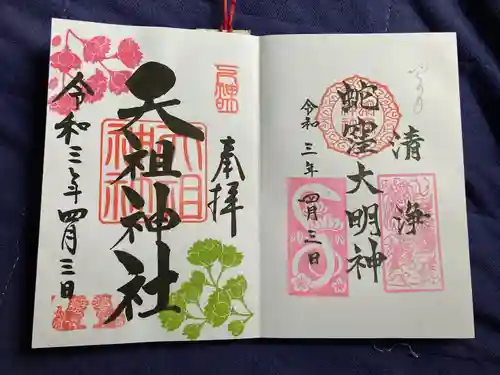 奉拝
天祖神社
令和三年四月三日
清浄
蛇窪大明神
令和三年四月三日